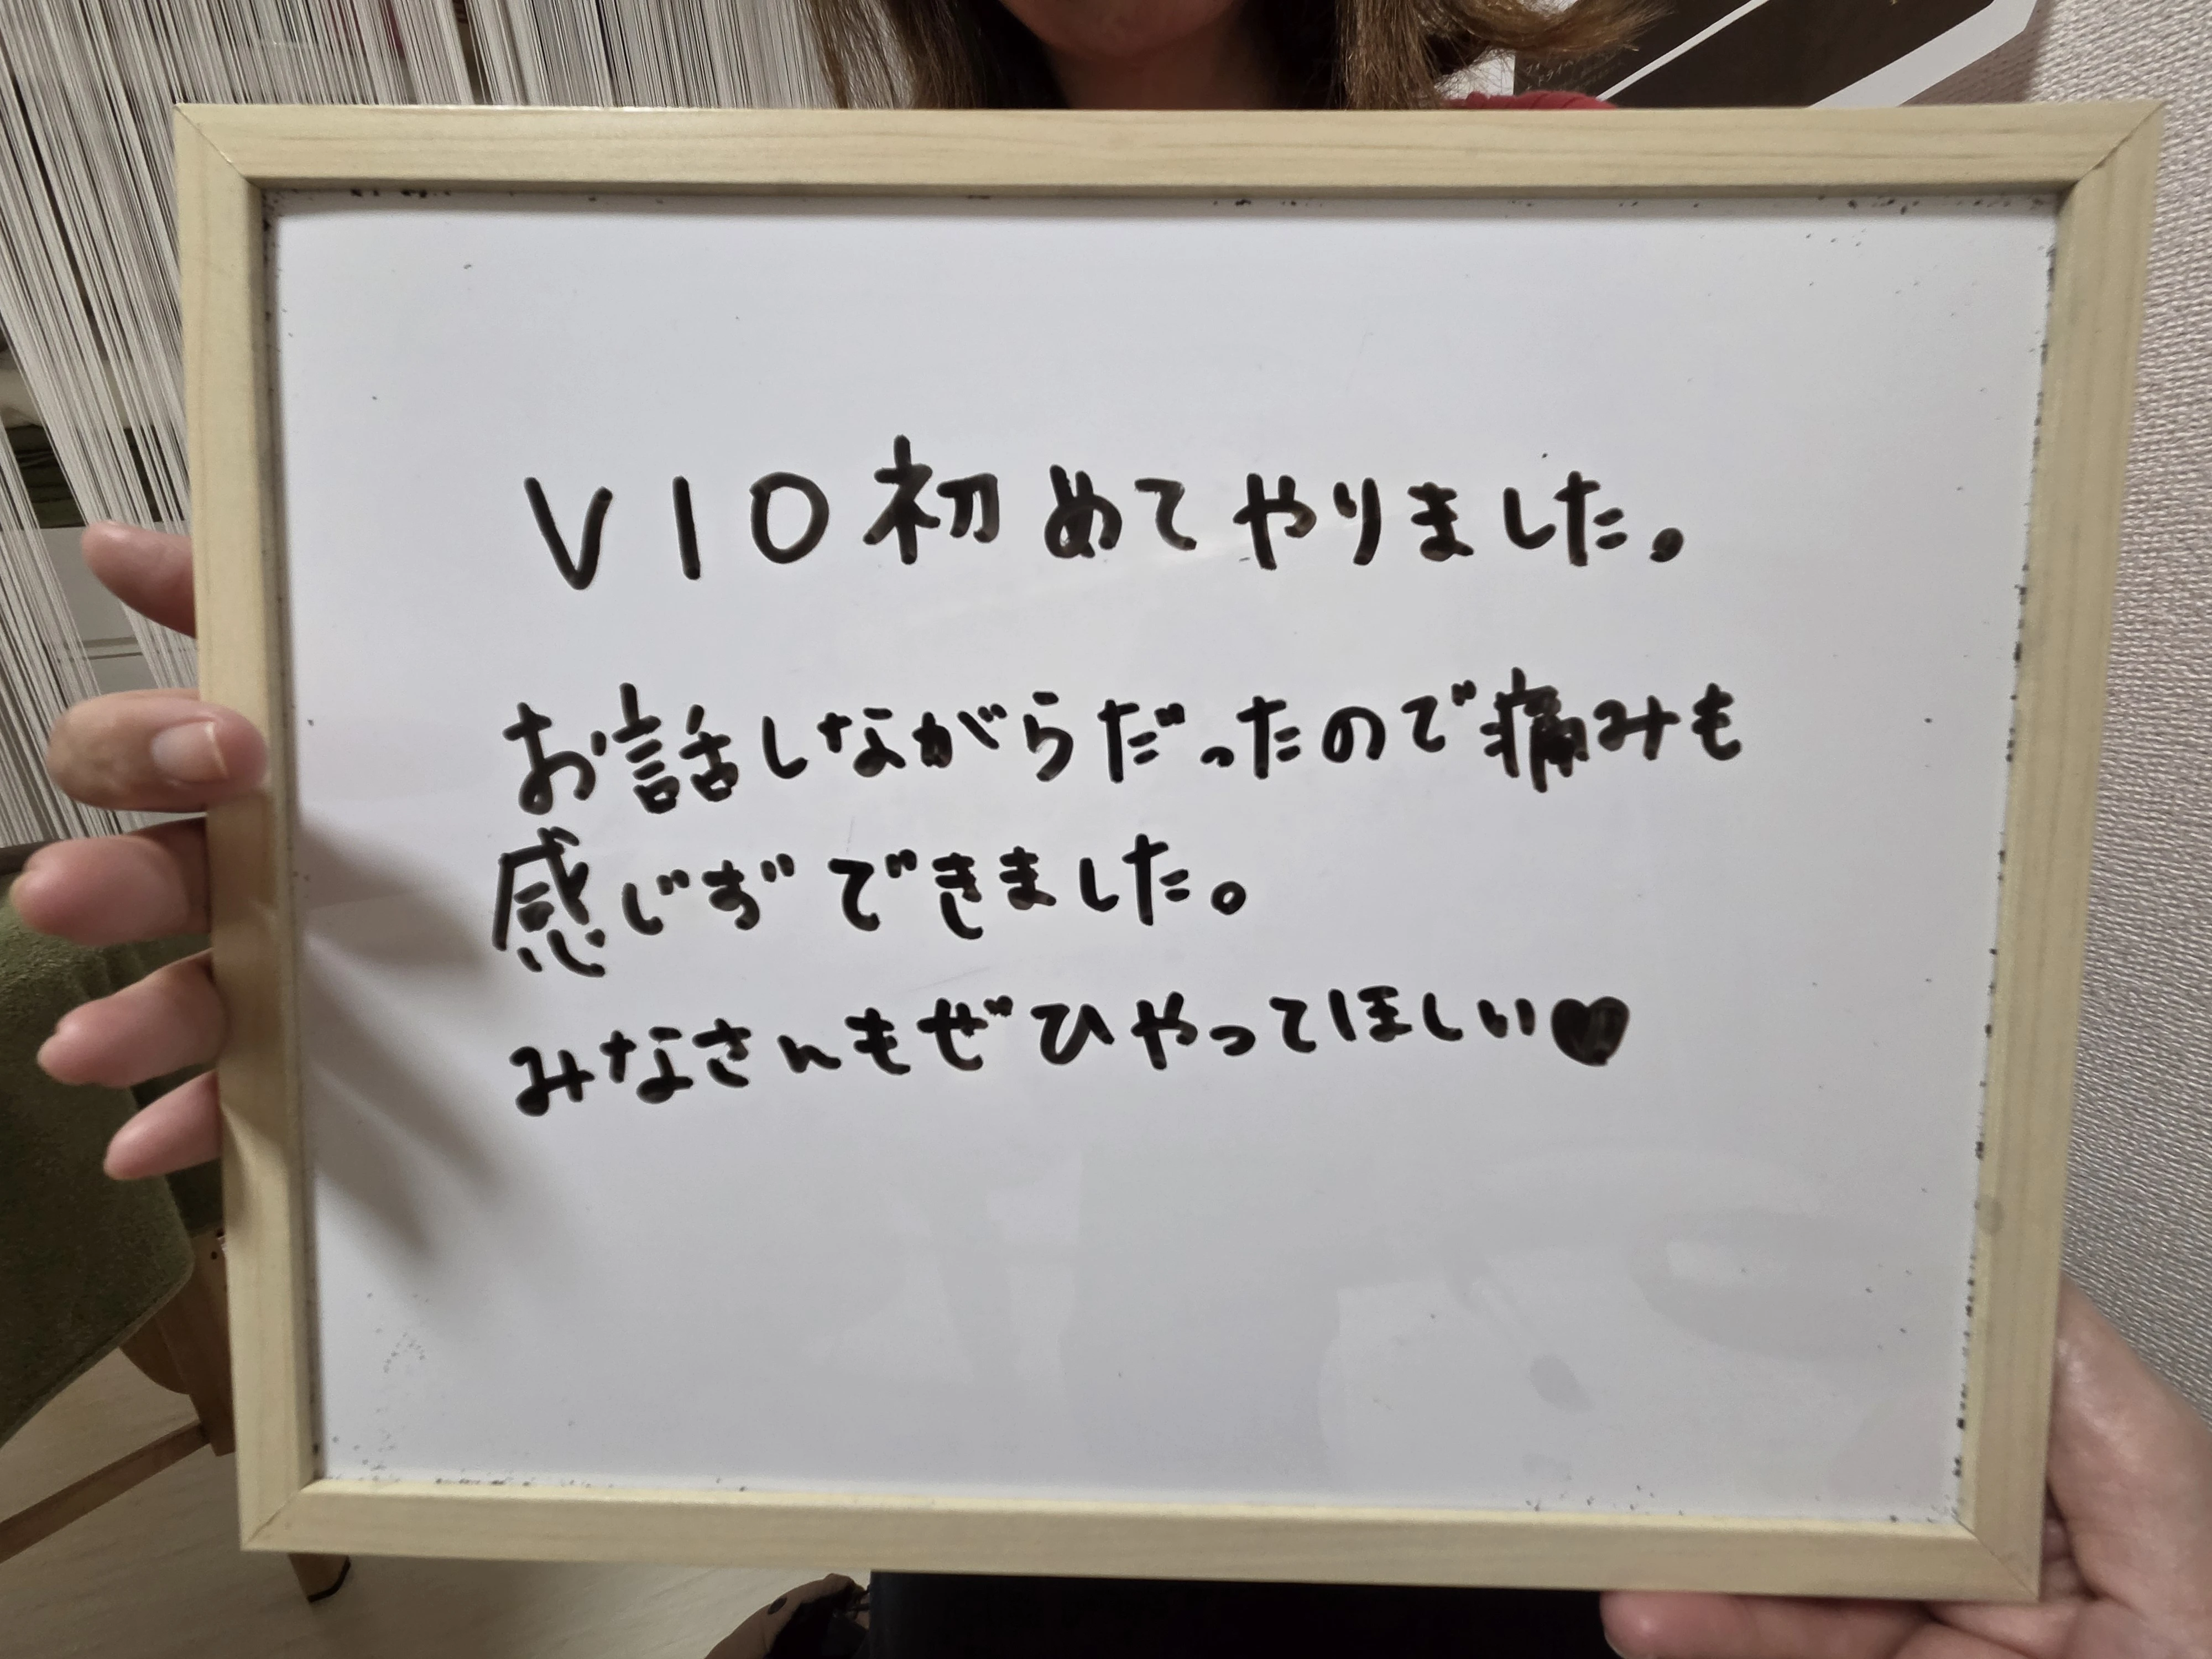 VIO初めてやりました。
お話しながらだったので痛みも
感じずできました。
みなさんもぜひやってほしい♥